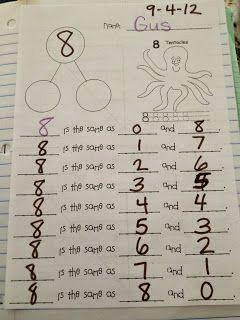 9-4-12
Name: Gus
8
8 Tentacles
8 8 8 8 8 8 8
8 is the same as 0 and 8.
8 is the same as 1 and 7.
8 is the same as 2 and 6.
8 is the same as 3 and 5.
8 is the same as 4 and 4.
8 is the same as 5 and 3.
8 is the same as 6 and 2.
8 is the same as 7 and 1.
8 is the same as 8 and 0.